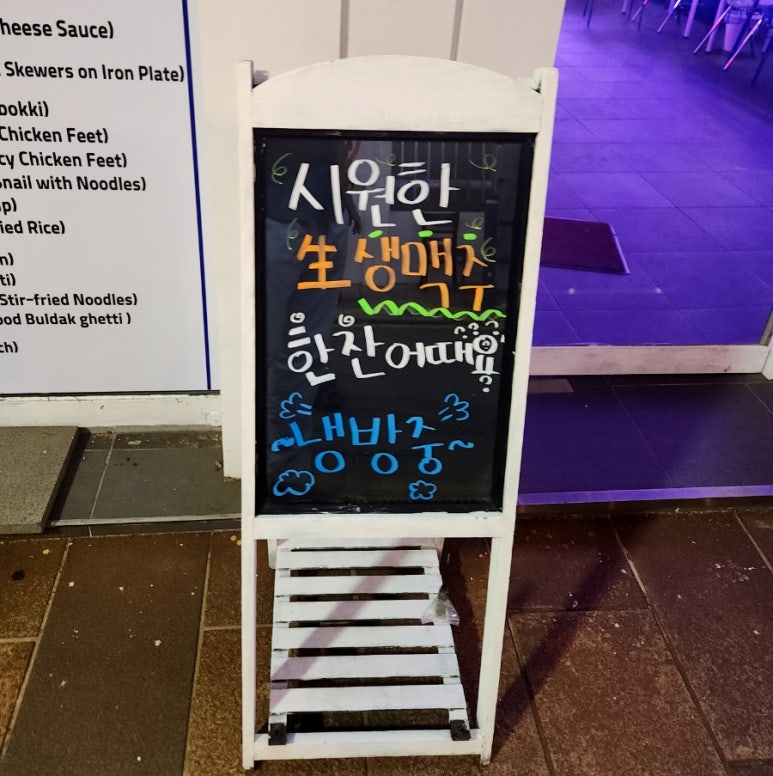 heese Sauce)
Skewers on Iron Plate)
ookki)
Chicken Feet)
cy Chicken Feet)
nail with Noodles)
p)
ied Rice)
n)
ti)
Stir-fried Noodles)
ood Buldak ghetti )
ch)
시원한
生생맥주
한잔어때요
~냉방중~